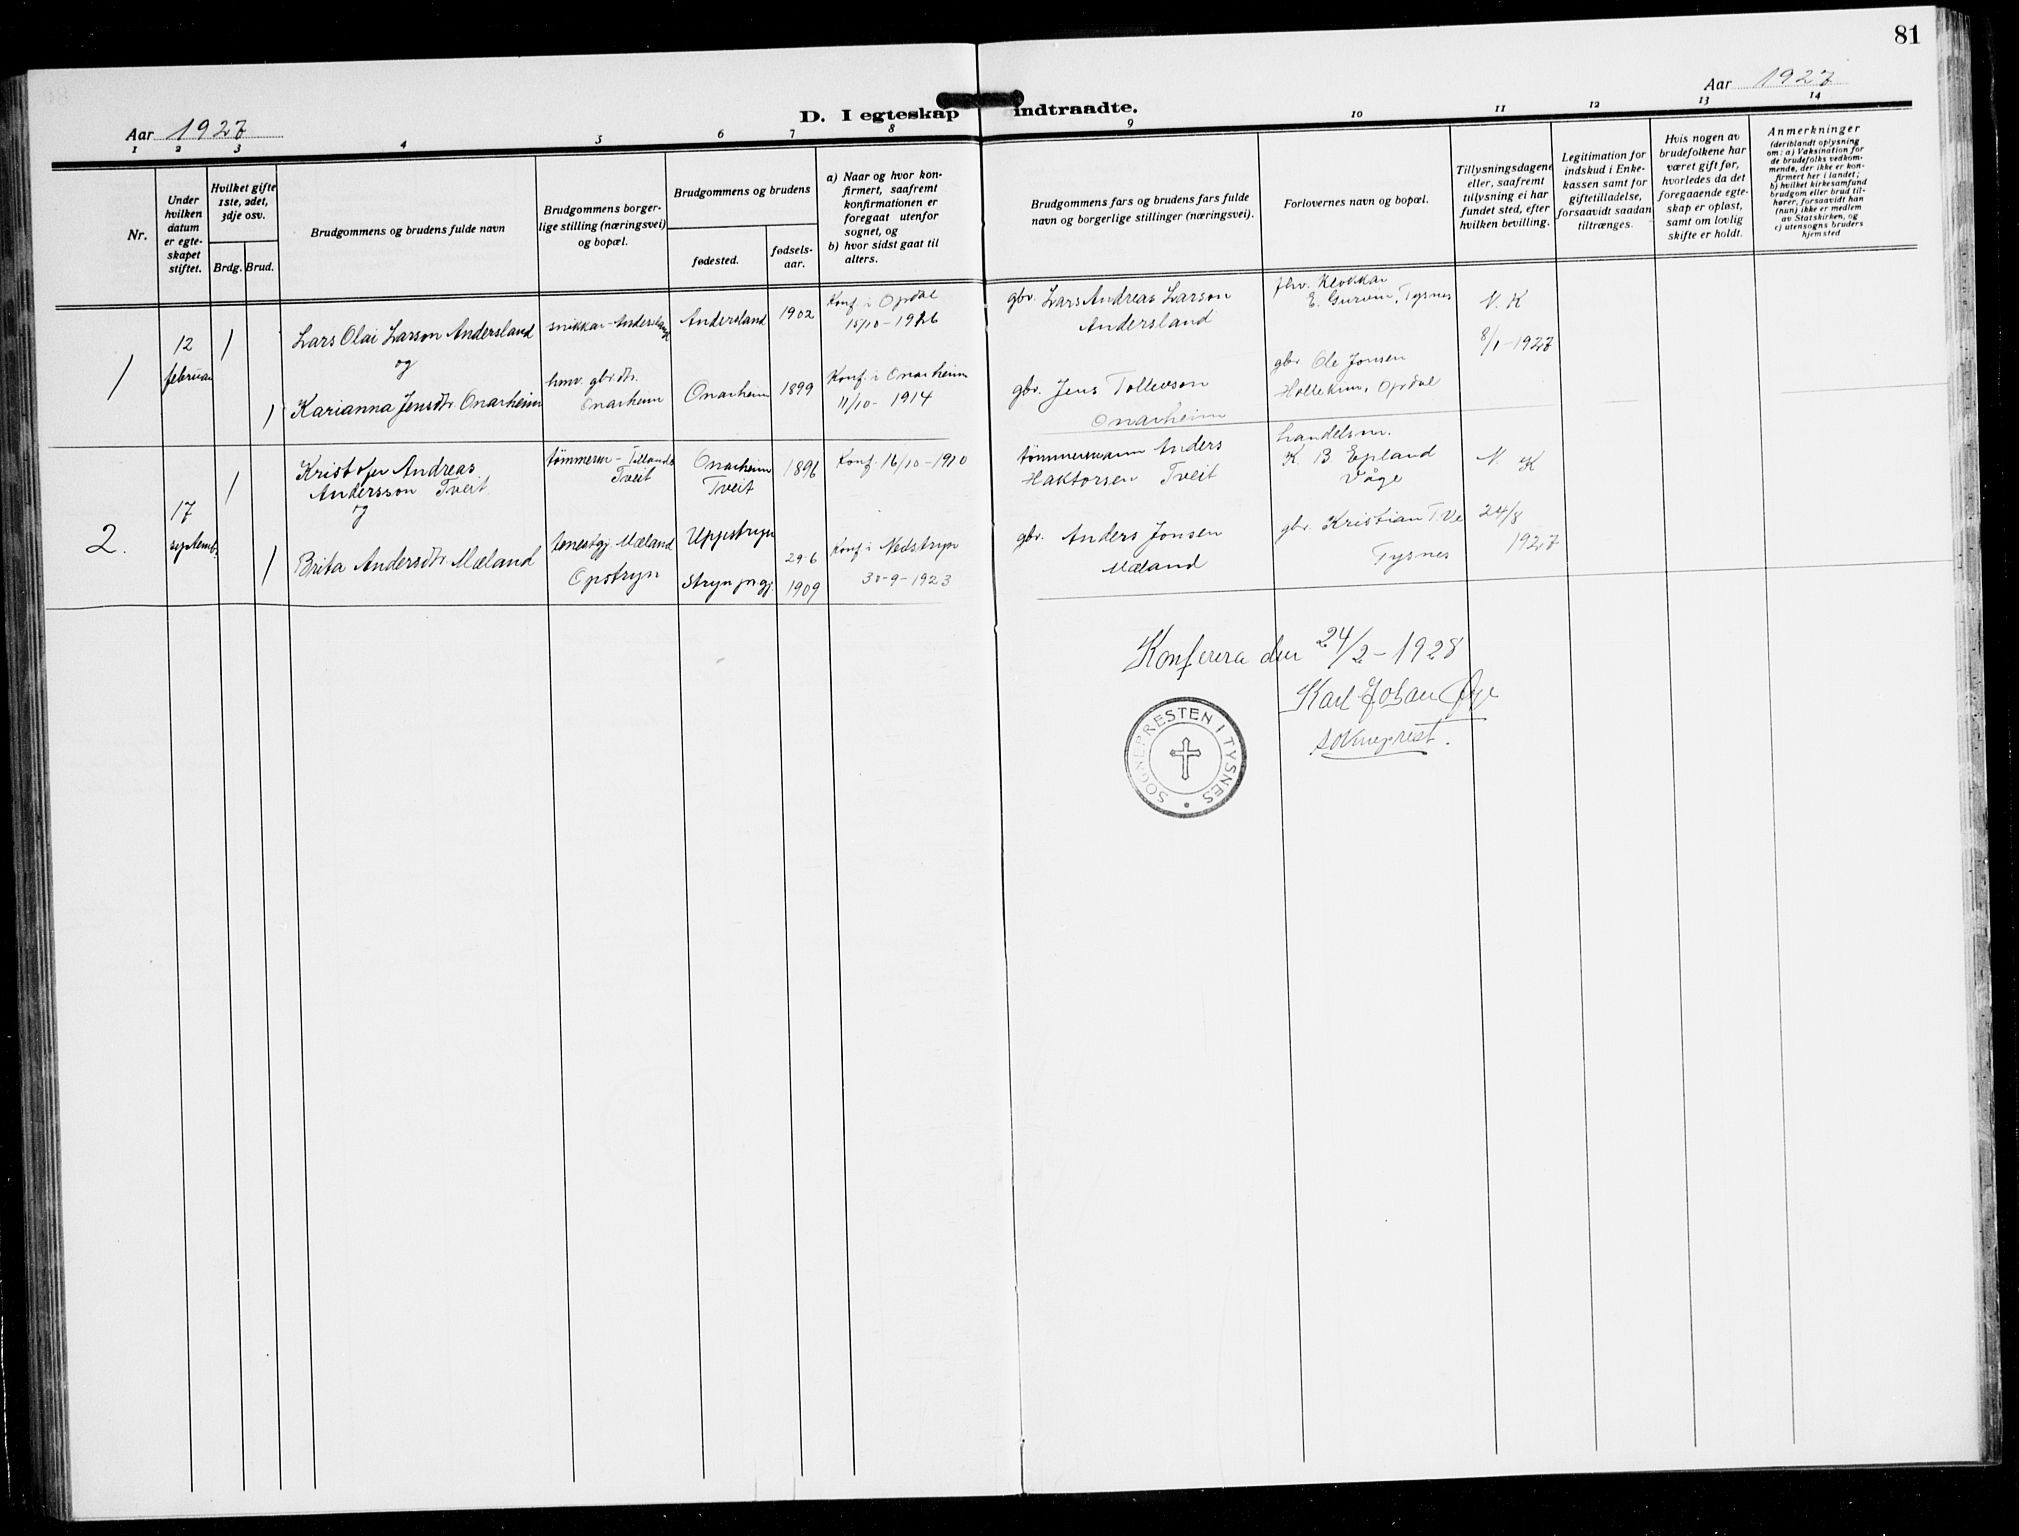 81
Aar 1927
Aar 1927
D. I egteskap indtraadte.
1 2 3 4 5 6 7 8 9 10 11 12 13 14
Nr.
Under
hvilken
datum
er egte-
skapet
stiftet.
Hvilket gifte
1ste, 2det,
3dje osv.
Brdg. Brud.
Brudgommens og brudens fulde navn
Brudgommens borger-
lige stilling (næringsvei)
og bopæl.
Brudgommens og brudens
fødested.
fødsels-
aar.
a) Naar og hvor kon-
firmert, saafremt
konfirmationen er
foregaat utenfor
sognet, og
b) hvor sidst gaat til
alters.
Brudgommens fars og brudens fars fulde
navn og borgerlige stillinger (næringsvei).
Forlovernes navn og bopæl.
Tillysningsdagene
eller, saafremt
tillysning ei har
fundet sted, efter
hvilken bevilling.
Legitimation for
indskud i Enke-
kassen samt for
giftetilladelse,
forsaavidt saadan
tiltrænges.
Hvis nogen av
brudefolkene har
været gift før,
hvorledes da det
foregaaende egte-
skap er opløst,
samt om lovlig
skifte er holdt.
Anmerkninger
(deriblandt oplysning
om: a) Vaksination for
de brudefolks vedkom-
mende, der ikke er kon-
firmert her i landet;
b) hvilket kirkesamfund
brudgom eller brud til-
hører, forsaavidt han
(hun) ikke er medlem
av Statskirken, og
c) utensogns bruders
hjemsted
1
12
februar
1
Lars Olai Larson Andersland
og
1
Karianna Jensdtr Onarheim
snikkar Andersland
hmv. gbr.dtr.
Onarheim
Andersland
1902
Onarheim
1899
Konf. i Opdal
15/10-1916
Konf. i Onarheim
11/10-1914
gbr. Lars Andreas Larson
Andersland
gbr. Jens Tollevson
Onarheim
fhv. Klokkar
E. Gurvin, Tysnes
gbr. Ole Jonsen
Hollekim, Opdal
N. K
8/1-1927
2.
17
septemb.
1
Kristofer Andreas
Andersson Tveit
og
1
Brita Andersdtr. Mæland
tømmerm-
Tveit
tenestgj. Mæland
Opstryn
Onarheim
Tveit
1896
Uppstryn
Stryn prgj.
29-6
1909
Konf. 16/10-1910
Konf. i Nedstryn
30-9-1923
tømmermann Anders
Haktorsen Tveit
gbr. Anders Jonsen
Mæland
handelsm.
K. B. Epland
Våge
gbr. Kristian T.Ve
Tysnes
N. K
24/8
1927
Konferera den 24/2-1928
Karl Johan Øye
sokneprest.
SOGNEPRESTEN I TYSNES